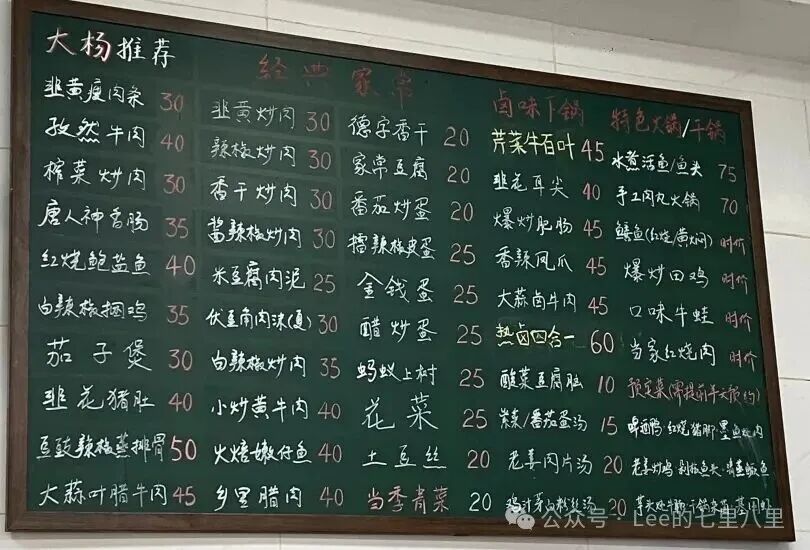 大杨推荐
韭黄瘦肉条 30
孜然牛肉 40
榨菜炒肉 30
唐人神香肠 35
红烧鲍盐鱼 40
白辣椒捆鸡 35
茄子煲 30
韭花猪肚 40
豆豉辣椒蒸排骨 50
大蒜叶腊牛肉 45
经典家常
韭黄炒肉 30
辣椒炒肉 30
香干炒肉 30
酱辣椒炒肉 30
米豆腐肉泥 25
伏豆角肉沫(夏) 30
白辣椒炒肉 35
小炒黄牛肉 40
火焙嫩仔鱼 40
乡里腊肉 40
德字香干 20
家常豆腐 20
番茄炒蛋 20
擂辣椒皮蛋 25
金钱蛋 25
醋炒蛋 25
蚂蚁上树 25
花菜 25
土豆丝 20
当季青菜 20
卤味下锅
芹菜牛百叶 45
韭花耳尖 40
爆炒肥肠 45
香辣凤爪 45
大蒜卤牛肉 45
热卤四合一 60
酸菜豆腐脑 10
紫菜/番茄蛋汤 15
老姜肉片汤 20
粉丝汤 20
特色火锅/干锅
水煮活鱼/鱼头 75
手工肉丸火锅 70
鳝鱼(红烧/黄焖) 时价
爆炒田鸡 时价
口味牛蛙 时价
当家红烧肉 时价
预定菜(需提前半天预约)
啤酒鸭·红烧猪脚·墨鱼炖肉
老姜炒鸡·剁椒鱼头·
公众号·Lee的七里八里